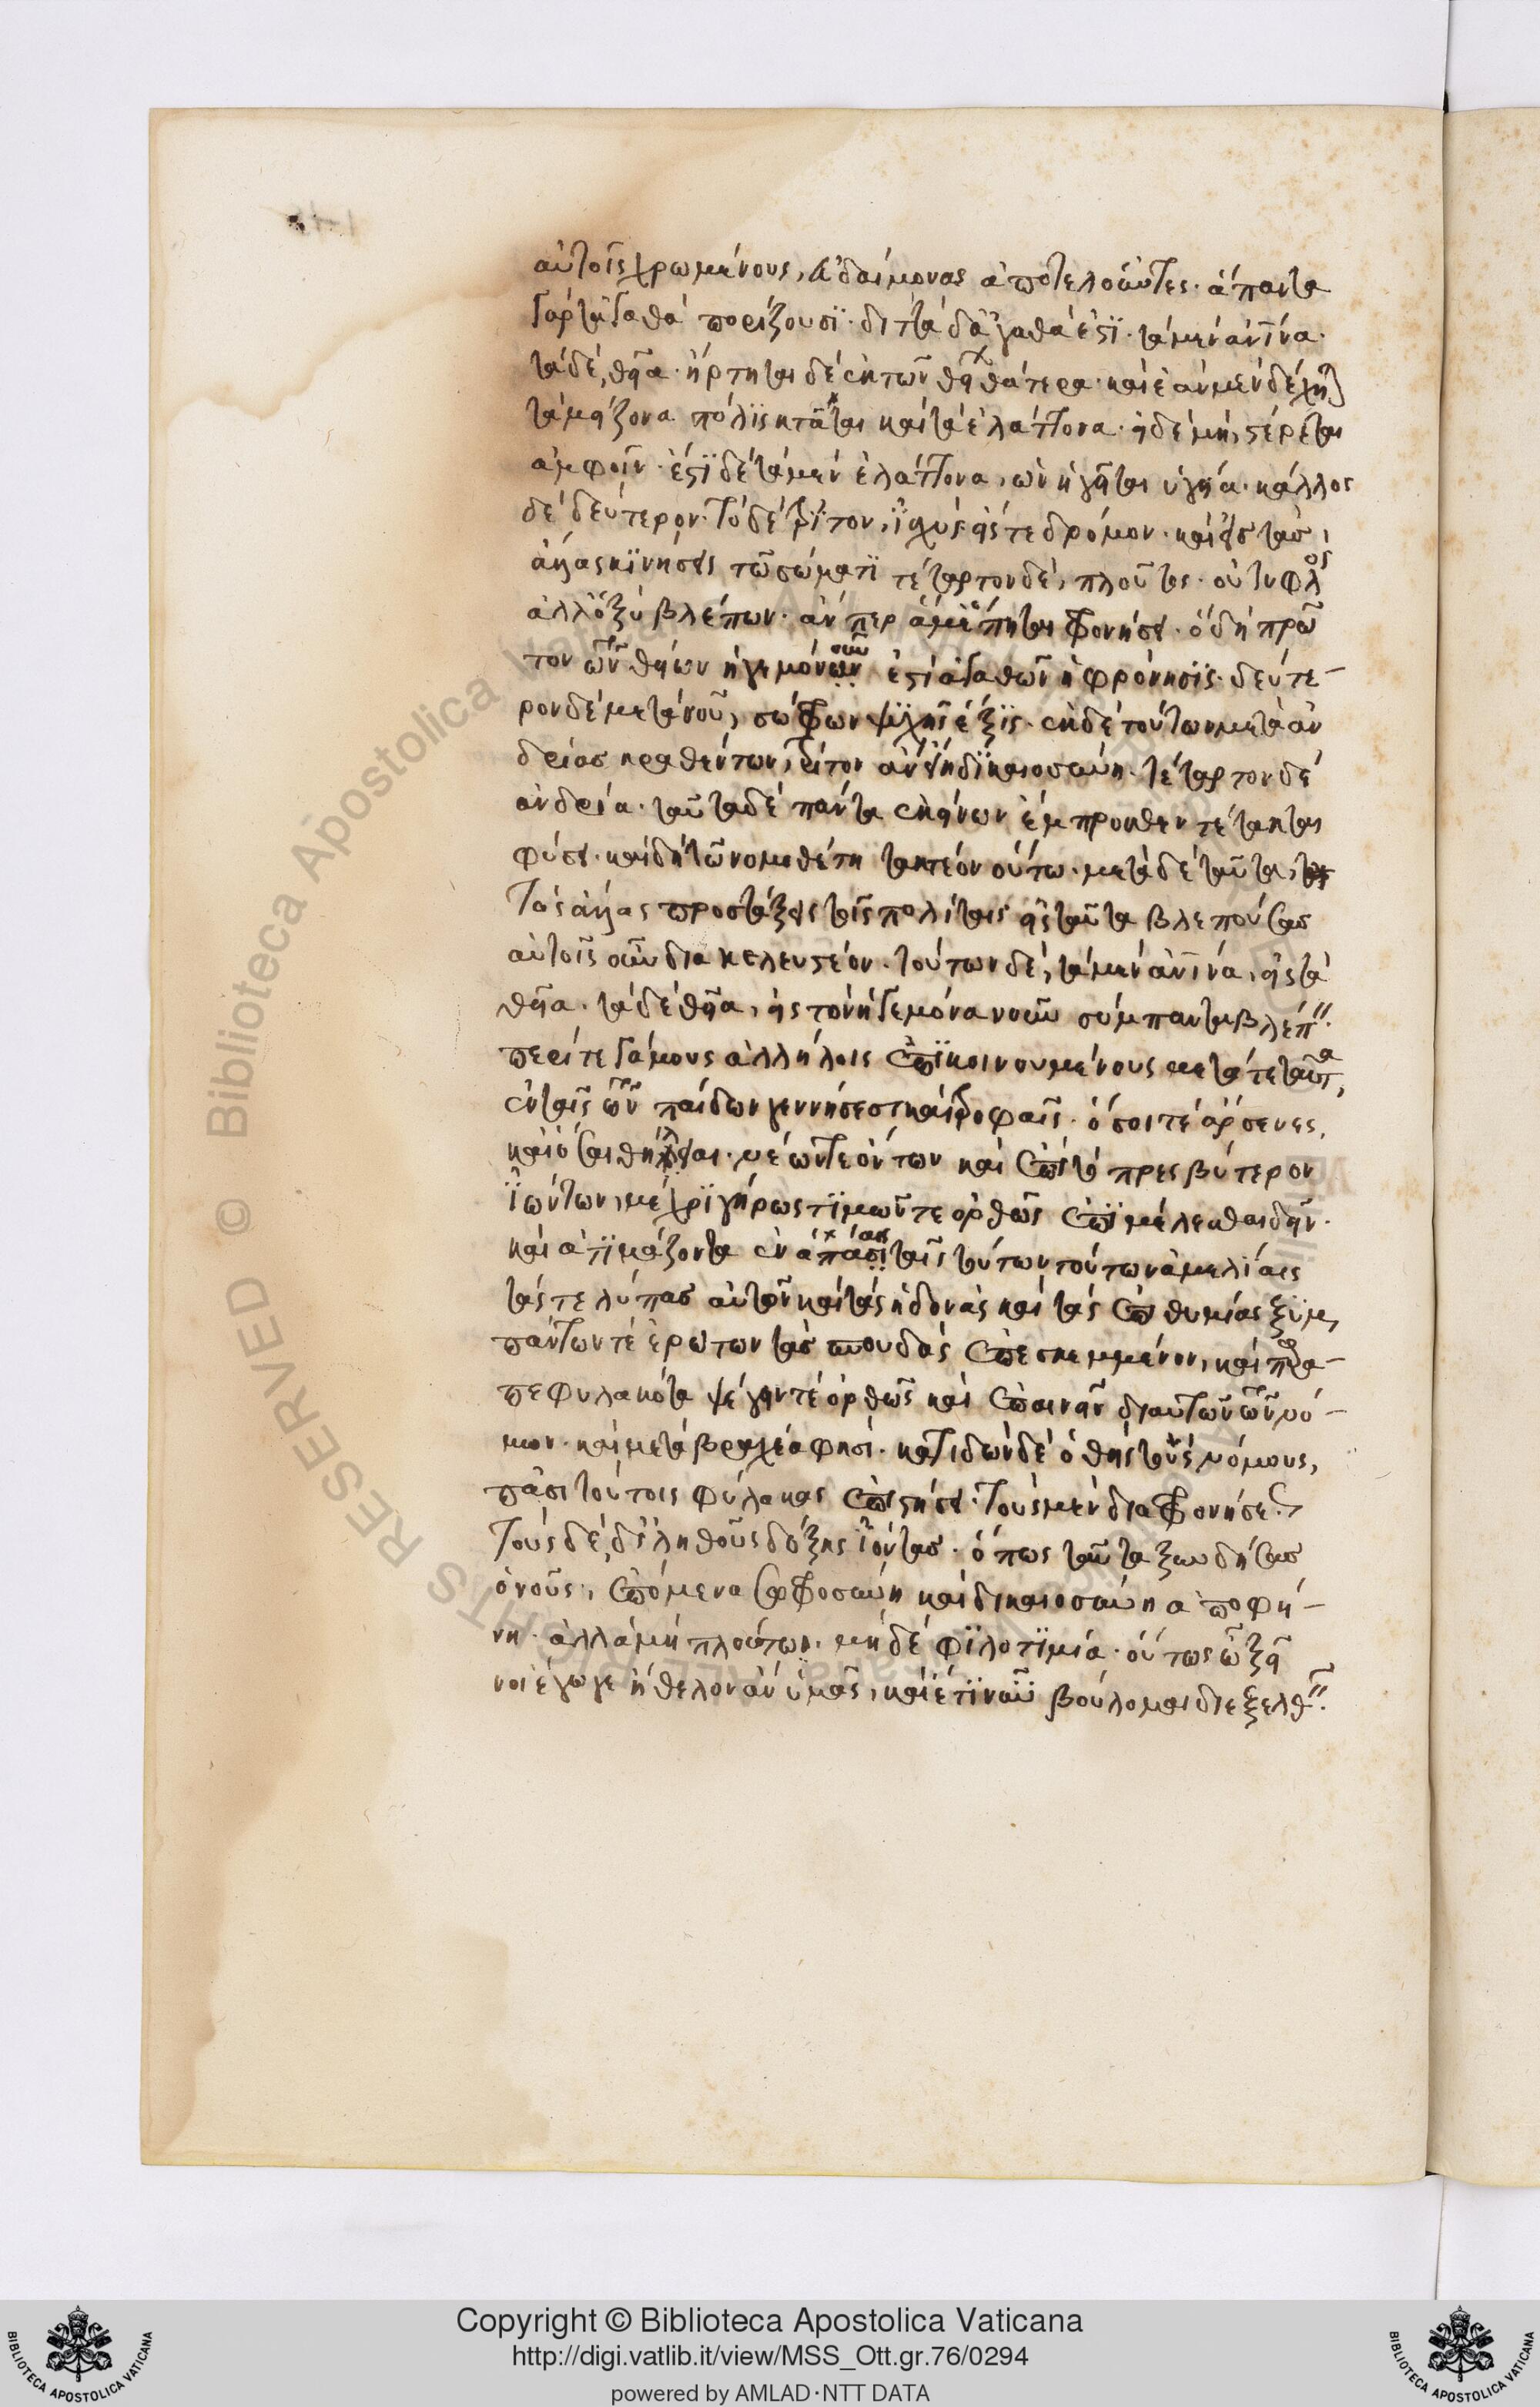 αὐτοῖς χρωμένους, εὐδαίμονας ἀποτελοῦντες· ἅπαντα
γὰρ τἀγαθὰ πορίζουσϊ· διττὰ δὲ ἀγαθά ἐστϊ· τὰ μὲν ἀνϊνα·
τὰ δὲ, θεῖα· ἤρτηται δὲ ἐκ τῶν θείων θάτερα· καὶ ἐὰν μὲν δέχηται
τὰ μείζονα πόλϊς κτᾶται καὶ τὰ ἐλάττονα· εἰ δὲ μὴ, στέρεται
ἀμφοῖν· ἔστϊ δὲ τὰ μὲν ἐλάττονα, ὧν ἡγεῖται ὑγεία· κάλλος
δὲ δεύτερον· τὸ δὲ τρίτον, ἰσχὺς εἴς τε δρόμον· καὶ εἰς τὰς
ἄλλας κϊνήσεις τῶ σώματϊ τέταρτον δὲ, πλοῦτος· οὐ τυφλος
ἀλλ' ὀξὺ βλέπων· ἄν περ ἅμ' ἕπηται φρονήσει· ὃ δὴ πρῶ
τον τῶν θείων ἡγεμόνουν ἐστὶ ἀγαθῶν ἡ φρόνησϊς· δεύτε-
ρον δὲ μετὰ νοῦ, σώφρων ψυχῆς ἕξϊς· ἐκ δὲ τούτων μετὰ ἀν
δρίας κραθέντων, τρίτον ἂν εἴη δϊκαιοσύνη· τέταρτον δὲ
ἀνδρία· ταῦτα δὲ πάντα ἐκείνων ἔμπροσθεν τέτακται
φύσει· καὶ δὴ τῶ νομοθέτη τακτέον οὕτω· μετὰ δὲ ταῦτα,
τὰς ἄλλας προστάξεις τοῖς πολίταις εἰς ταῦτα βλεπούσας
αὐτοῖς οὖν διακελευστέον· τούτων δὲ, τὰ μὲν ἀνϊνα, εἰς τὰ
θεῖα· τὰ δὲ θεῖα, εἰς τὸν ἡγεμόνα νοῦν σύμπαντα βλέπειν·
περί τε γάμους ἀλλήλοις ἐπϊκοινουμένους μετά τε ταῦτα,
ἐν ταῖς τῶν παίδων γεννήσεσϊ καὶ τροφαῖς· ὅσοι τε ἄρσενες,
καὶ ὅσαι θήλειαι· νέων τε ὄντων καὶ ἐπὶ τὸ πρεσβύτερον
ἰόντων, μέχρϊ γήρως τϊμῶντε ὀρθῶς ἐπϊμελεῖσθαι δεῖν·
καὶ ἀτϊμάζοντα ἐν ἁπάσαις ταῖς τούτων τούτων ὁμιλίαις
τάς τε λύπας αὐτῶν καὶ τὰς ἡδονὰς καὶ τὰς ἐπιθυμίας ξυμ
πάντων τὲ ἐρώτων τὰς σπουδὰς ἐπεσκεμμένον, καὶ παρα-
πεφυλακότα ψέγειν τὲ ὀρθῶς καὶ ἐπαινεῖν δι' αὐτῶν τῶν νό-
μων· καὶ μετὰ βραχέα φησί· κατϊδὼν δὲ ὁ θεὶς τοὺς νόμους,
πᾶσι τούτοις φύλακας ἐπιστήσει· τοὺς μὲν διὰ φρονήσεως
τοὺς δὲ, δι' ἀληθοῦς δόξης ἰόντας· ὅπως ταῦτα ξυνδήσας
ὁ νοῦς, ἑπόμενα σωφροσύνη καὶ δικαιοσύνη ἀποφή-
νη· ἀλλὰ μὴ πλούτω· μὴ δὲ φϊλοτϊμία· οὕτως ὦ ξέ
νοι ἔγωγε ἤθελον ἂν ὑμᾶς, καὶ ἔτϊ νῦν βούλομαι διεξελθεῖν·
Copyright © Biblioteca Apostolica Vaticana
http://digi.vatlib.it/view/MSS_Ott.gr.76/0294
powered by AMLAD·NTT DATA